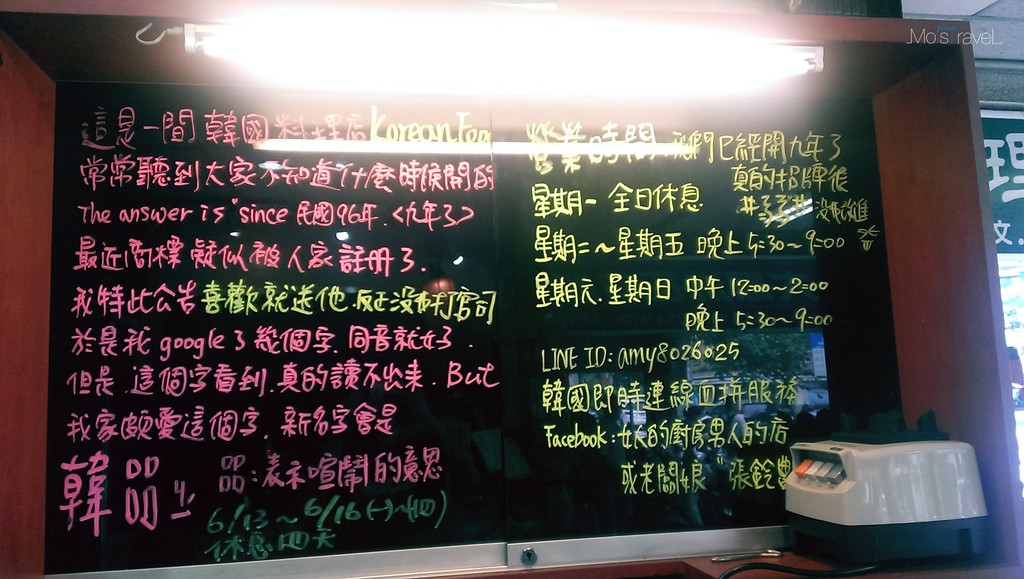 Mo's Travel
這是一間 韓國料理店 Korean Foo
常常聽到大家不知道什麼時候開的
The answer is "since 民國96年. <九年了>
最近商標疑似被人家註冊了.
我特此公告喜歡就送他.反正沒有打官司
於是我google了幾個字.同音就好.
但是.這個字看到.真的讀不出來. But
我家頗愛這個字.新名字會是
韓㗊
㗊:表示喧鬧的意思
6/13～6/16(一)~(四)
休息四天
營業時間 我們已經開九年了
真的招牌很
星期一 全日休息
星期二～星期五 晚上5:30～9:00
星期六.星期日 中午12:00～2:00
晚上5:30～9:00
LINE ID: amy8026025
韓國即時連線血拼服務
Facebook:女人的廚房男人的店
或老闆娘"張鈴
理
文.